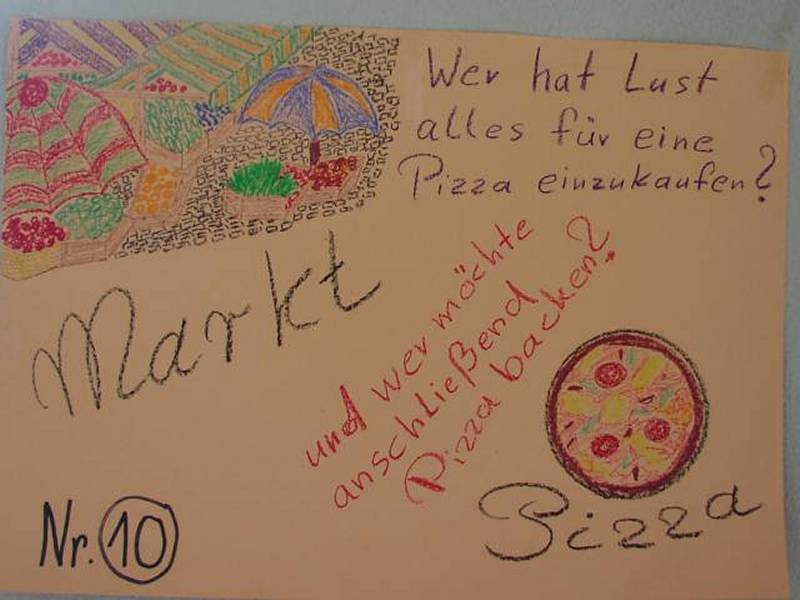 Wer hat Lust
alles für eine
Pizza einzukaufen?
Markt
und wer möchte
anschließend
Pizza backen?
Pizza
Nr. 10